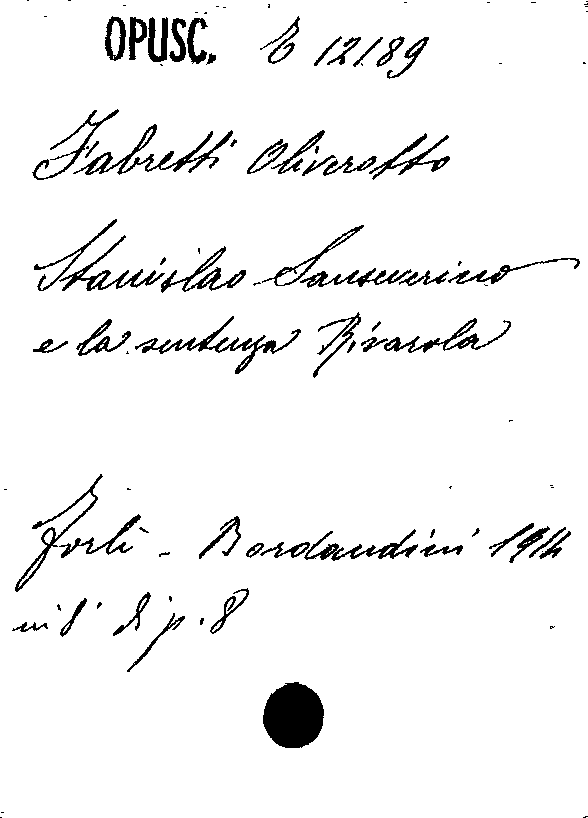 OPUSC. E 12189
Fabretti Oliverotto
Stanislao Sanseverino
e la sentenza Rivarola
Forlì - Bordandini 1914
in 8° di p. 8